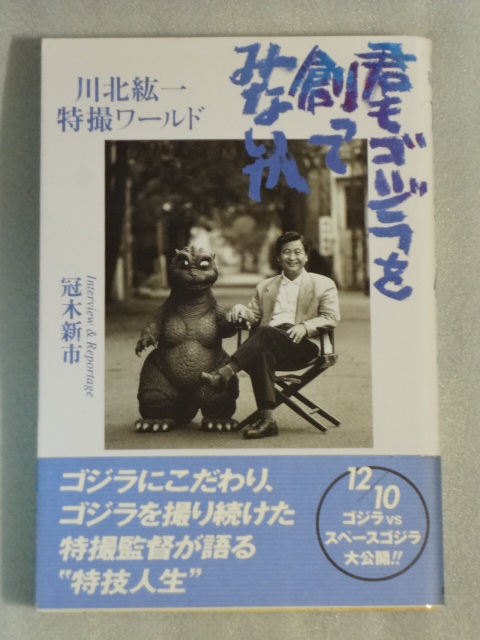 君もゴジラを
創って
みないか
川北紘一
特撮ワールド
Interview & Reportage
冠木新市
ゴジラにこだわり、
ゴジラを撮り続けた
特撮監督が語る
“特技人生”
12/10
ゴジラVS
スペースゴジラ
大公開!!